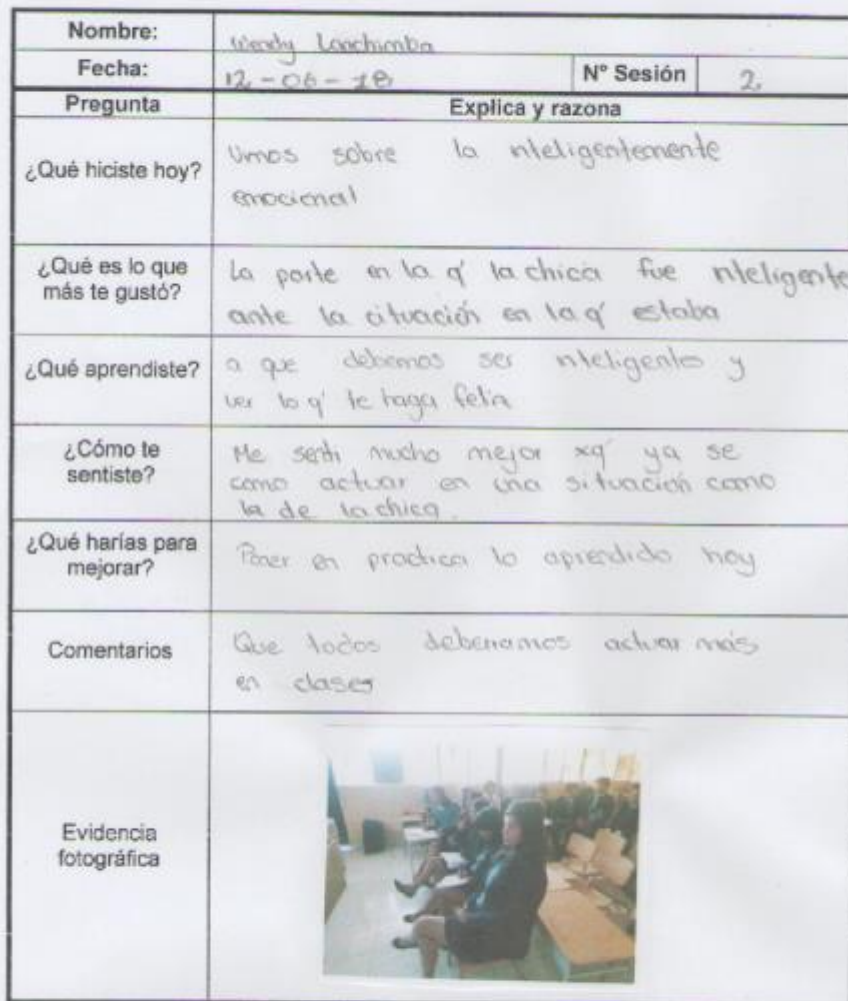 Nombre:
Wendy Lanchimba
Fecha:
12-06-18
N° Sesión
2
Pregunta
Explica y razona
¿Qué hiciste hoy?
Vimos sobre la nteligentemente
emocional
¿Qué es lo que
más te gustó?
La parte en la q' la chica fue nteligente
ante la cituación en la q' estaba
¿Qué aprendiste?
a que debemos ser nteligentes y
ver lo q' te haga feliz
¿Cómo te
sentiste?
Me senti mucho mejor xq' ya se
como actuar en una situación como
la de la chica.
¿Qué harías para
mejorar?
Poner en practica lo aprendido hoy
Comentarios
Que todos deberiamos actuar más
en clases
Evidencia
fotográfica